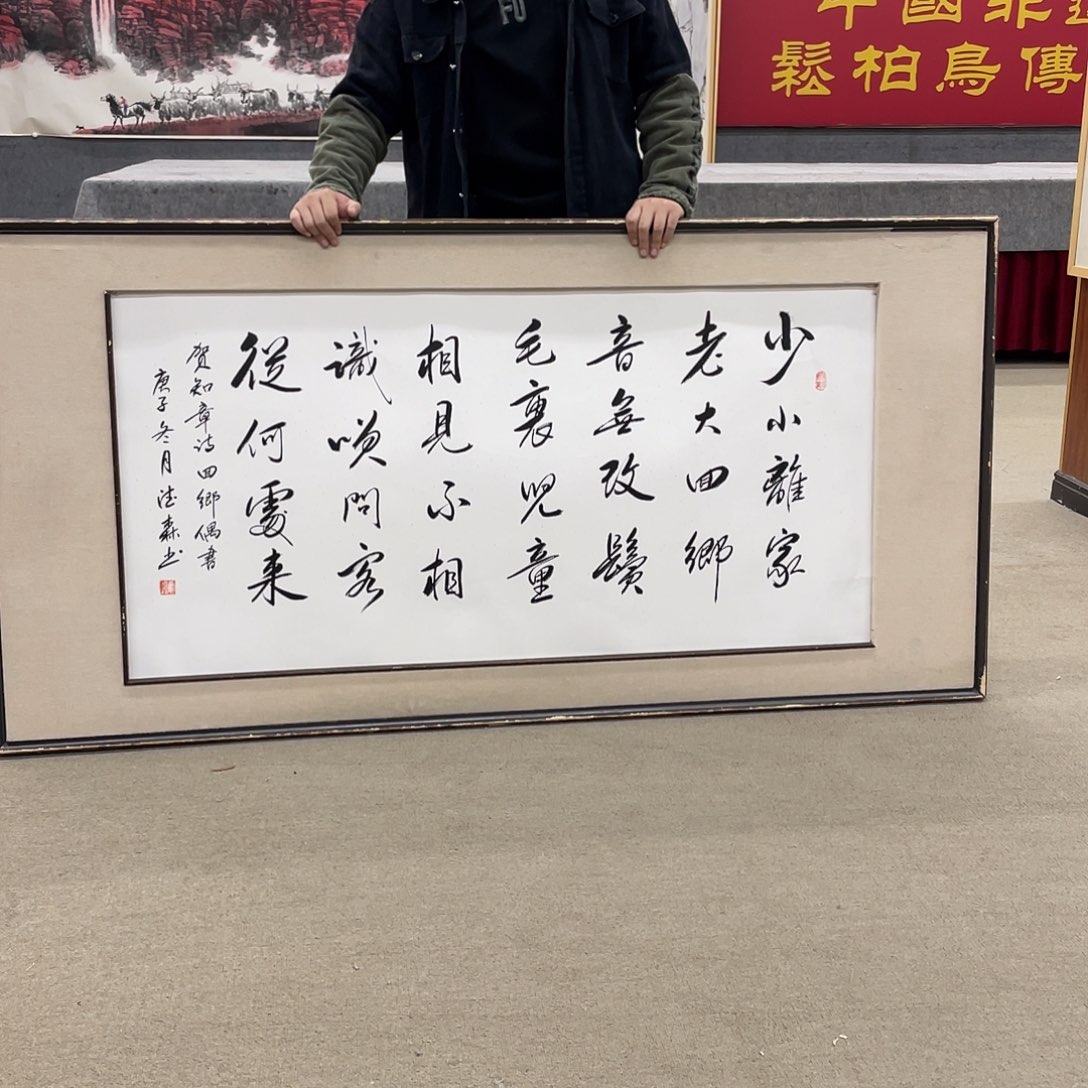 中國非
鬆柏鳥傳
FU
少小離家
老大回鄉
音無改鬢
毛衰兒童
相見不相
識唤問客
從何處来
賀知章诗回鄉偶書
庚子冬月德森书